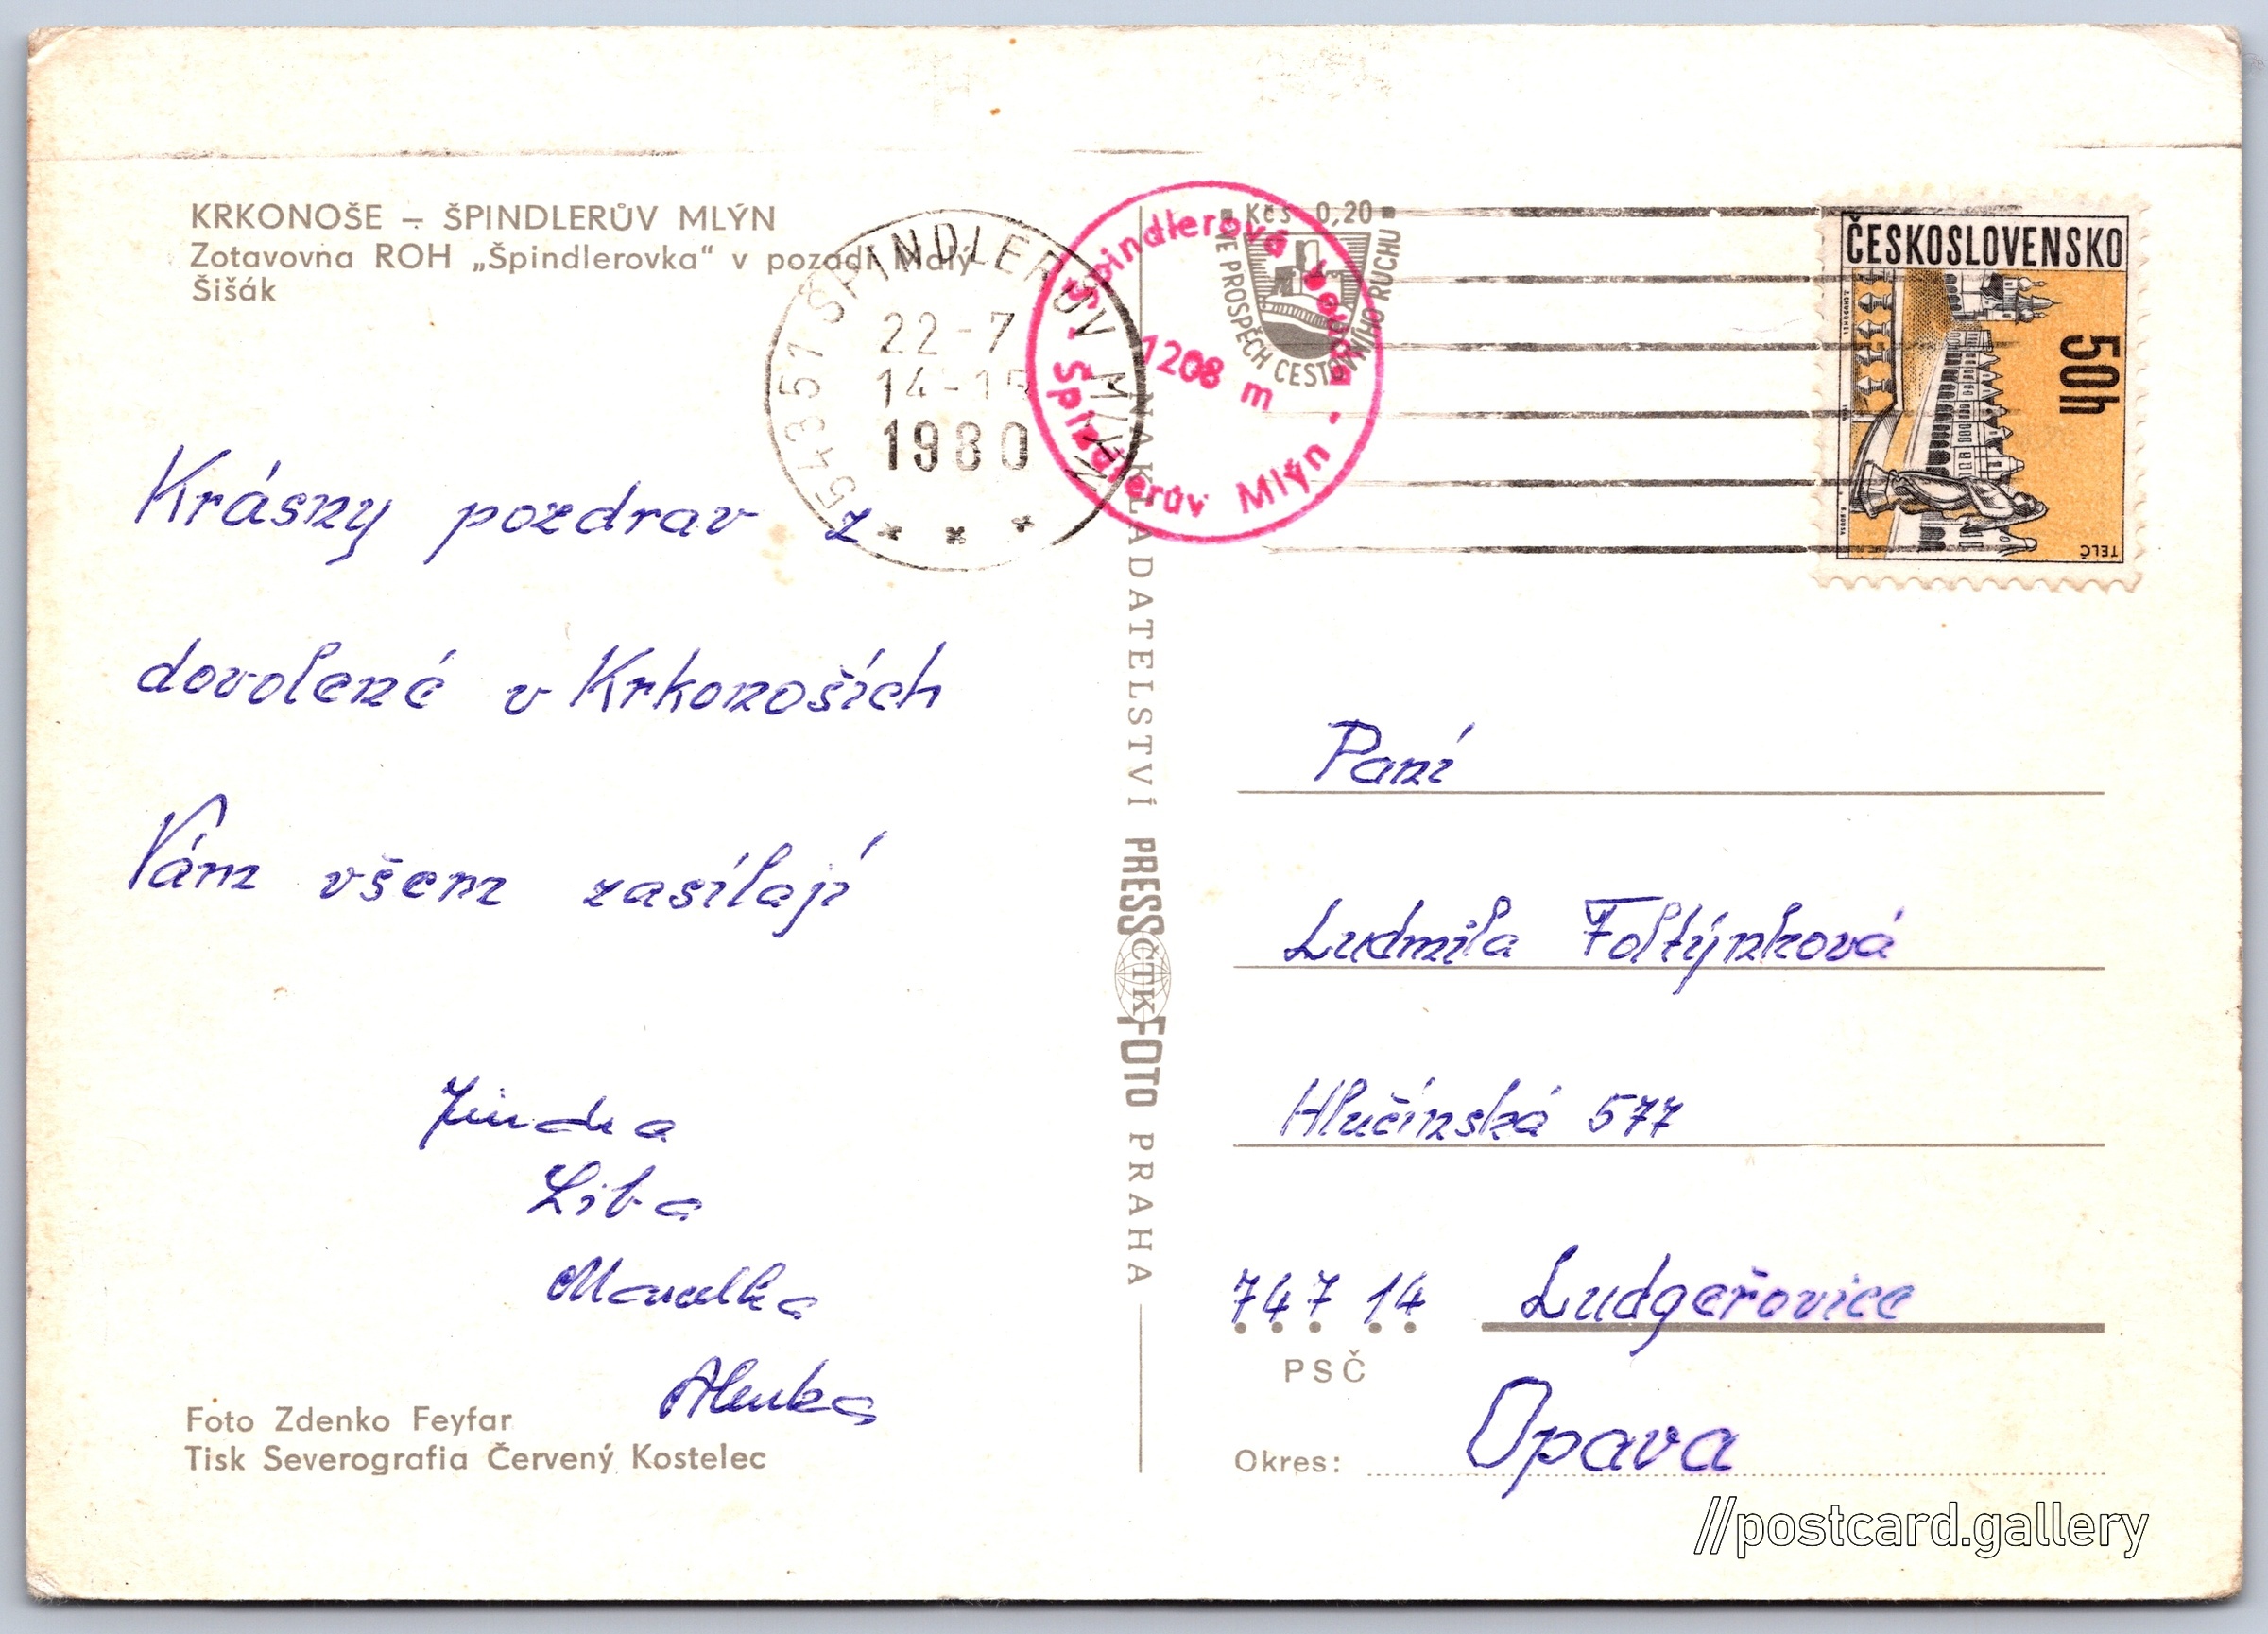 KRKONOŠE – ŠPINDLERŮV MLÝN
Zotavovna ROH „Špindlerovka“ v pozadí Malý
Šišák
543 51 ŠPINDLERŮV MLÝN
22-7
14-15
1980
Špindlerova bouda -
1208 m
Špindlerův Mlýn -
Kčs 0,20
VE PROSPĚCH CESTOVNÍHO RUCHU
ČESKOSLOVENSKO
50h
TELČ
Krásny pozdrav z
dovolené v Krkonoších
Vám všem zasílají
Jindra
Liba
Marcelka
Alenka
Foto Zdenko Feyfar
Tisk Severografia Červený Kostelec
NAKLADATELSTVÍ PRESSFOTO PRAHA
ČTK
Paní
Ludmila Foltýnková
Hlučínská 577
747 14 Ludgeřovice
PSČ
Okres: Opava
//postcard.gallery